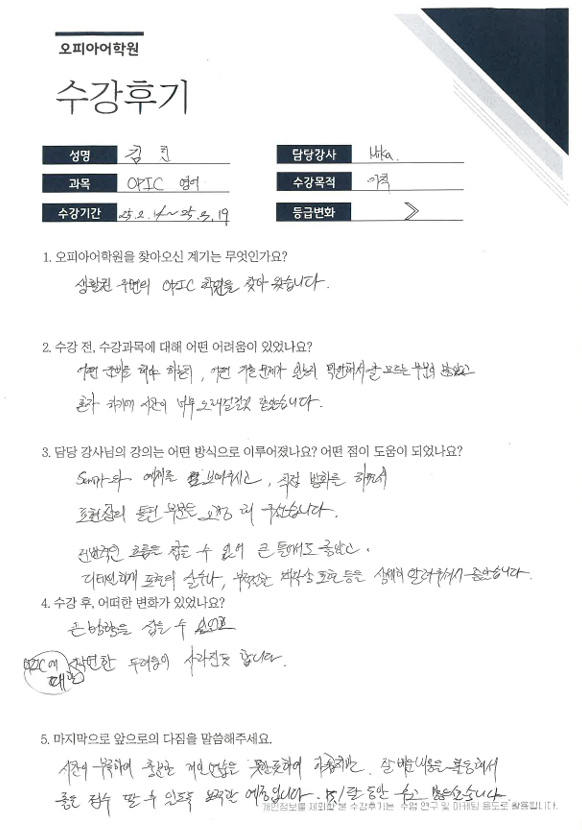 오피아어학원
수강후기
성명 김
담당강사 Mika.
과목 OPIC 영어
수강목적 이직
수강기간 25.2.14~25.3.19
등급변화
1. 오피아어학원을 찾아오신 계기는 무엇인가요?
생활권 주변의 OPIC 학원을 찾아 왔습니다.
2. 수강 전, 수강과목에 대해 어떤 어려움이 있었나요?
어떤 준비를 해야 하는지, 어떤 기출문제가 있는지 막연해서 잘 모르는 부분이 많았고
혼자 하기에 시간이 너무 오래걸릴것 같았습니다.
3. 담당 강사님의 강의는 어떤 방식으로 이루어졌나요? 어떤 점이 도움이 되었나요?
예제를 보여주시고, 직접 발화를 하면서
표현들의 틀린 부분은 교정 해 주셨습니다.
전반적인 흐름을 잡을 수 있어 큰 틀에서도 좋았고.
디테일하게 표현의 실수나, 부적절한 표현 등을 상세히 알려주셔서 좋았습니다.
4. 수강 후, 어떠한 변화가 있었나요?
큰 방향을 잡을 수 있었고
OPIC에 대한 막연한 두려움이 사라진듯 합니다.
5. 마지막으로 앞으로의 다짐을 말씀해주세요.
시간이 부족하여 충분한 개인연습을 못한듯하여 아쉽지만, 잘 배운내용을 활용해서
좋은 점수 딸 수 있도록 노력할 예정입니다. 한달 동안 많았습니다.
개인정보를 제외한 본 수강후기는 수업 연구 및 마케팅 용도로 활용됩니다.